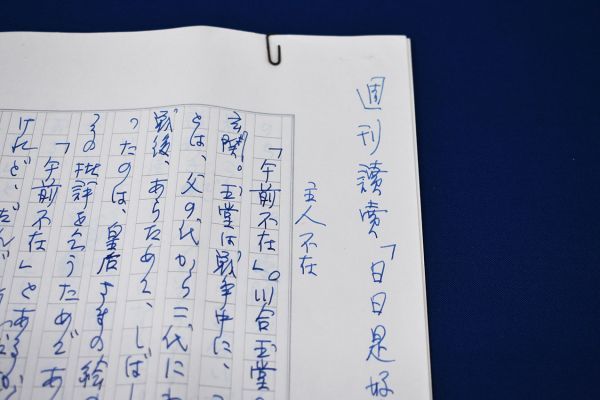 週刊讀賣「日日是好
主人不在
「午前不在」。川合玉堂の
玄関。玉堂は戦争中に、
とは、父の代から二代にわ
戦後、あらためて、しばし
ったのは、皇后さまの絵の
批評を乞うためであ
「午前不在」とあるが
けれど、だんだ